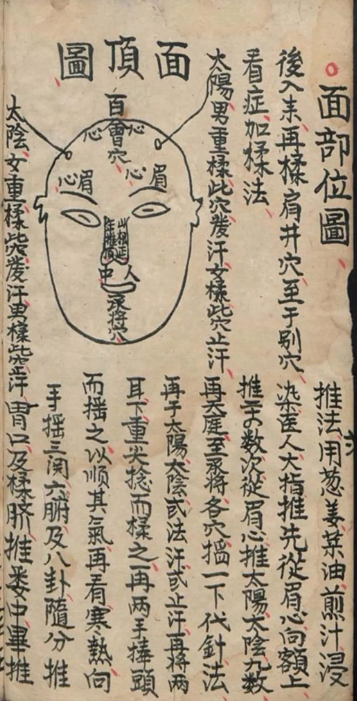 面部位圖
推法用葱姜菜油煎汁浸
染医人大指推先從眉心向額上
推至數次從眉心推太陽太陰九數
再天庭至承將各穴搯一下代針法
再于太陽太陰或法汗或止汗再將兩
耳下重尖捻而揉之再兩手捧頭
而搖之以順其氣再看寒熱向
手搖三関六腑及八卦隨分推
胃口及揉臍推委中畢推
後入耒再揉肩井穴至于别穴
看症加揉法
面頂圖
太陽男重揉此穴發汗女揉此穴止汗
百會穴
心
心
眉
眉心
心
山根
人中
承將穴
太陰女重揉此發汗男揉此止汗